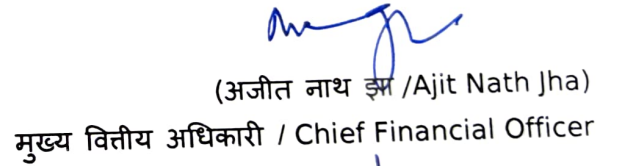 (अजीत नाथ झा /Ajit Nath Jha)
मुख्य वित्तीय अधिकारी / Chief Financial Officer